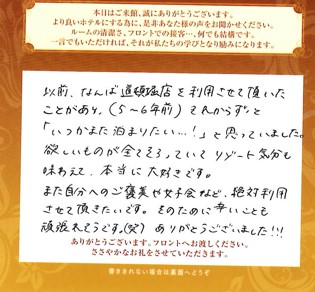 本日はご来館、誠にありがとうございます。
より良いホテルにする為に、是非あなた様の声をお聞かせください。
ルームの清潔さ、フロントでの接客…、何でも結構です。
一言でもいただければ、それが私たちの学びとなり励みになります。
以前、なんば道頓堀店を利用させて頂いた
ことがあり、(5〜6年前) それからずっと
「いつかまた泊まりたい…!」と思っていました。
欲しいものが全てそろっていてリゾート気分も
味わえて、本当に大好きです。
また自分へのご褒美や女子会など、絶対利用
させて頂きたいです。そのために辛いことも
頑張れそうです。(笑) ありがとうございました!!!
ありがとうございます。フロントへお渡しください。
ささやかなお礼をさせていただきます。
書ききれない場合は裏面へどうぞ